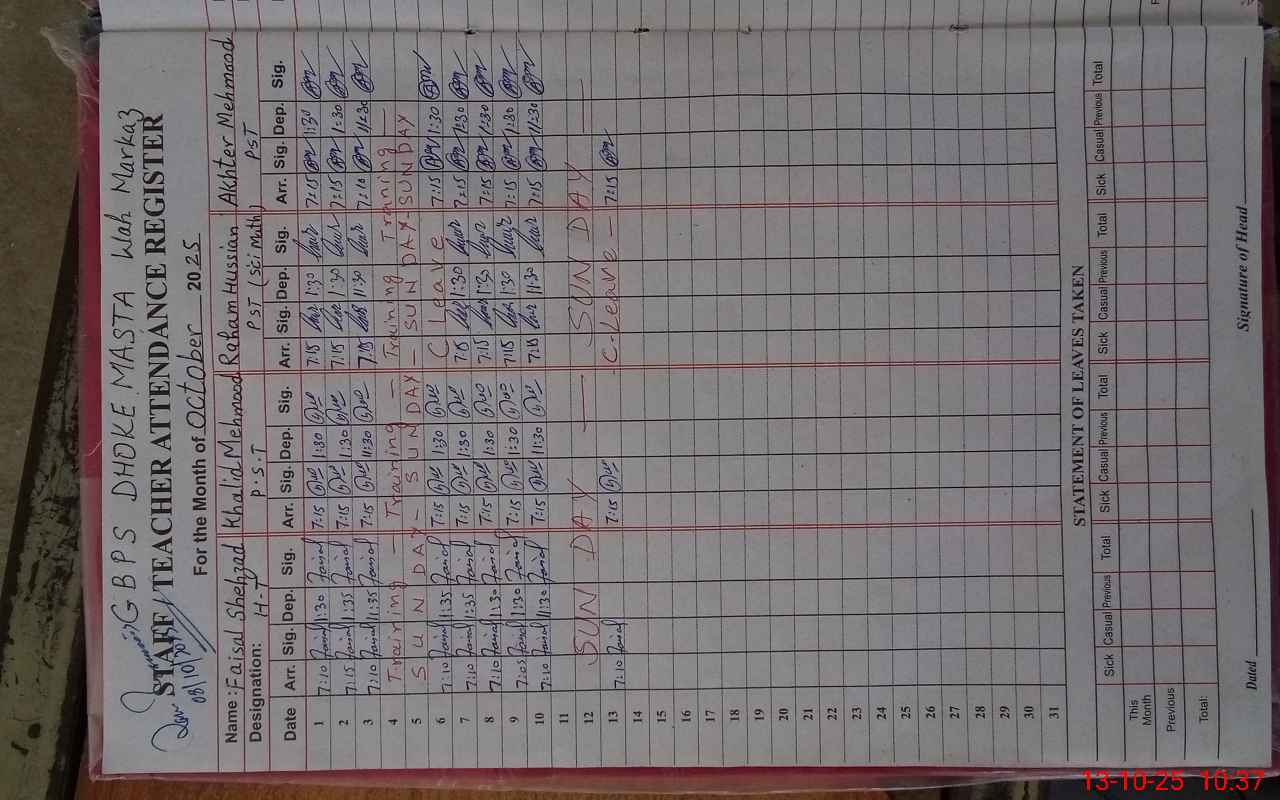 GBPS DHOKE MASTA Wah Markaz
STAFF / TEACHER ATTENDANCE REGISTER
08/10/2025
For the Month of October 2025
Name: Faisal Shehzad Khalid Mehmood Raham Hussian Akhter Mehmood
Designation: H-T P.S.T PST (Sci Math) PST
Date Arr. Sig. Dep. Sig. Arr. Sig. Dep. Sig. Arr. Sig. Dep. Sig. Arr. Sig. Dep. Sig.
1 7:10 Faisal 1:30 Faisal 7:15 1:30 7:15 1:30 7:15 1:30
2 7:15 Faisal 1:35 Faisal 7:15 1:30 7:15 1:30 7:15 1:30
3 7:10 Faisal 1:35 Faisal 7:15 11:30 7:15 1:30 7:10 11:30
4 Training — Training — Training Training —
5 SUNDAY - SUNDAY - SUNDAY - SUNDAY
6 7:10 Faisal 1:35 Faisal 7:15 1:30 C Leave 7:15 1:30
7 7:10 Faisal 1:35 Faisal 7:15 1:30 7:15 1:30 7:15 1:30
8 7:10 Faisal 1:30 Faisal 7:15 1:30 7:15 1:30 7:15 1:30
9 7:05 Faisal 1:30 Faisal 7:15 1:30 7:15 1:30 7:15 1:30
10 7:10 Faisal 11:30 Faisal 7:15 11:30 7:15 11:30 7:15 11:30
11
12 SUN DAY — SUN DAY —
13 7:10 Faisal 7:15 C-Leave - 7:15
14
15
16
17
18
19
20
21
22
23
24
25
26
27
28
29
30
31
STATEMENT OF LEAVES TAKEN
Sick Casual Previous Total Sick Casual Previous Total Sick Casual Previous Total Sick Casual Previous Total
This Month
Previous
Total:
Dated Signature of Head
13-10-25 10:37